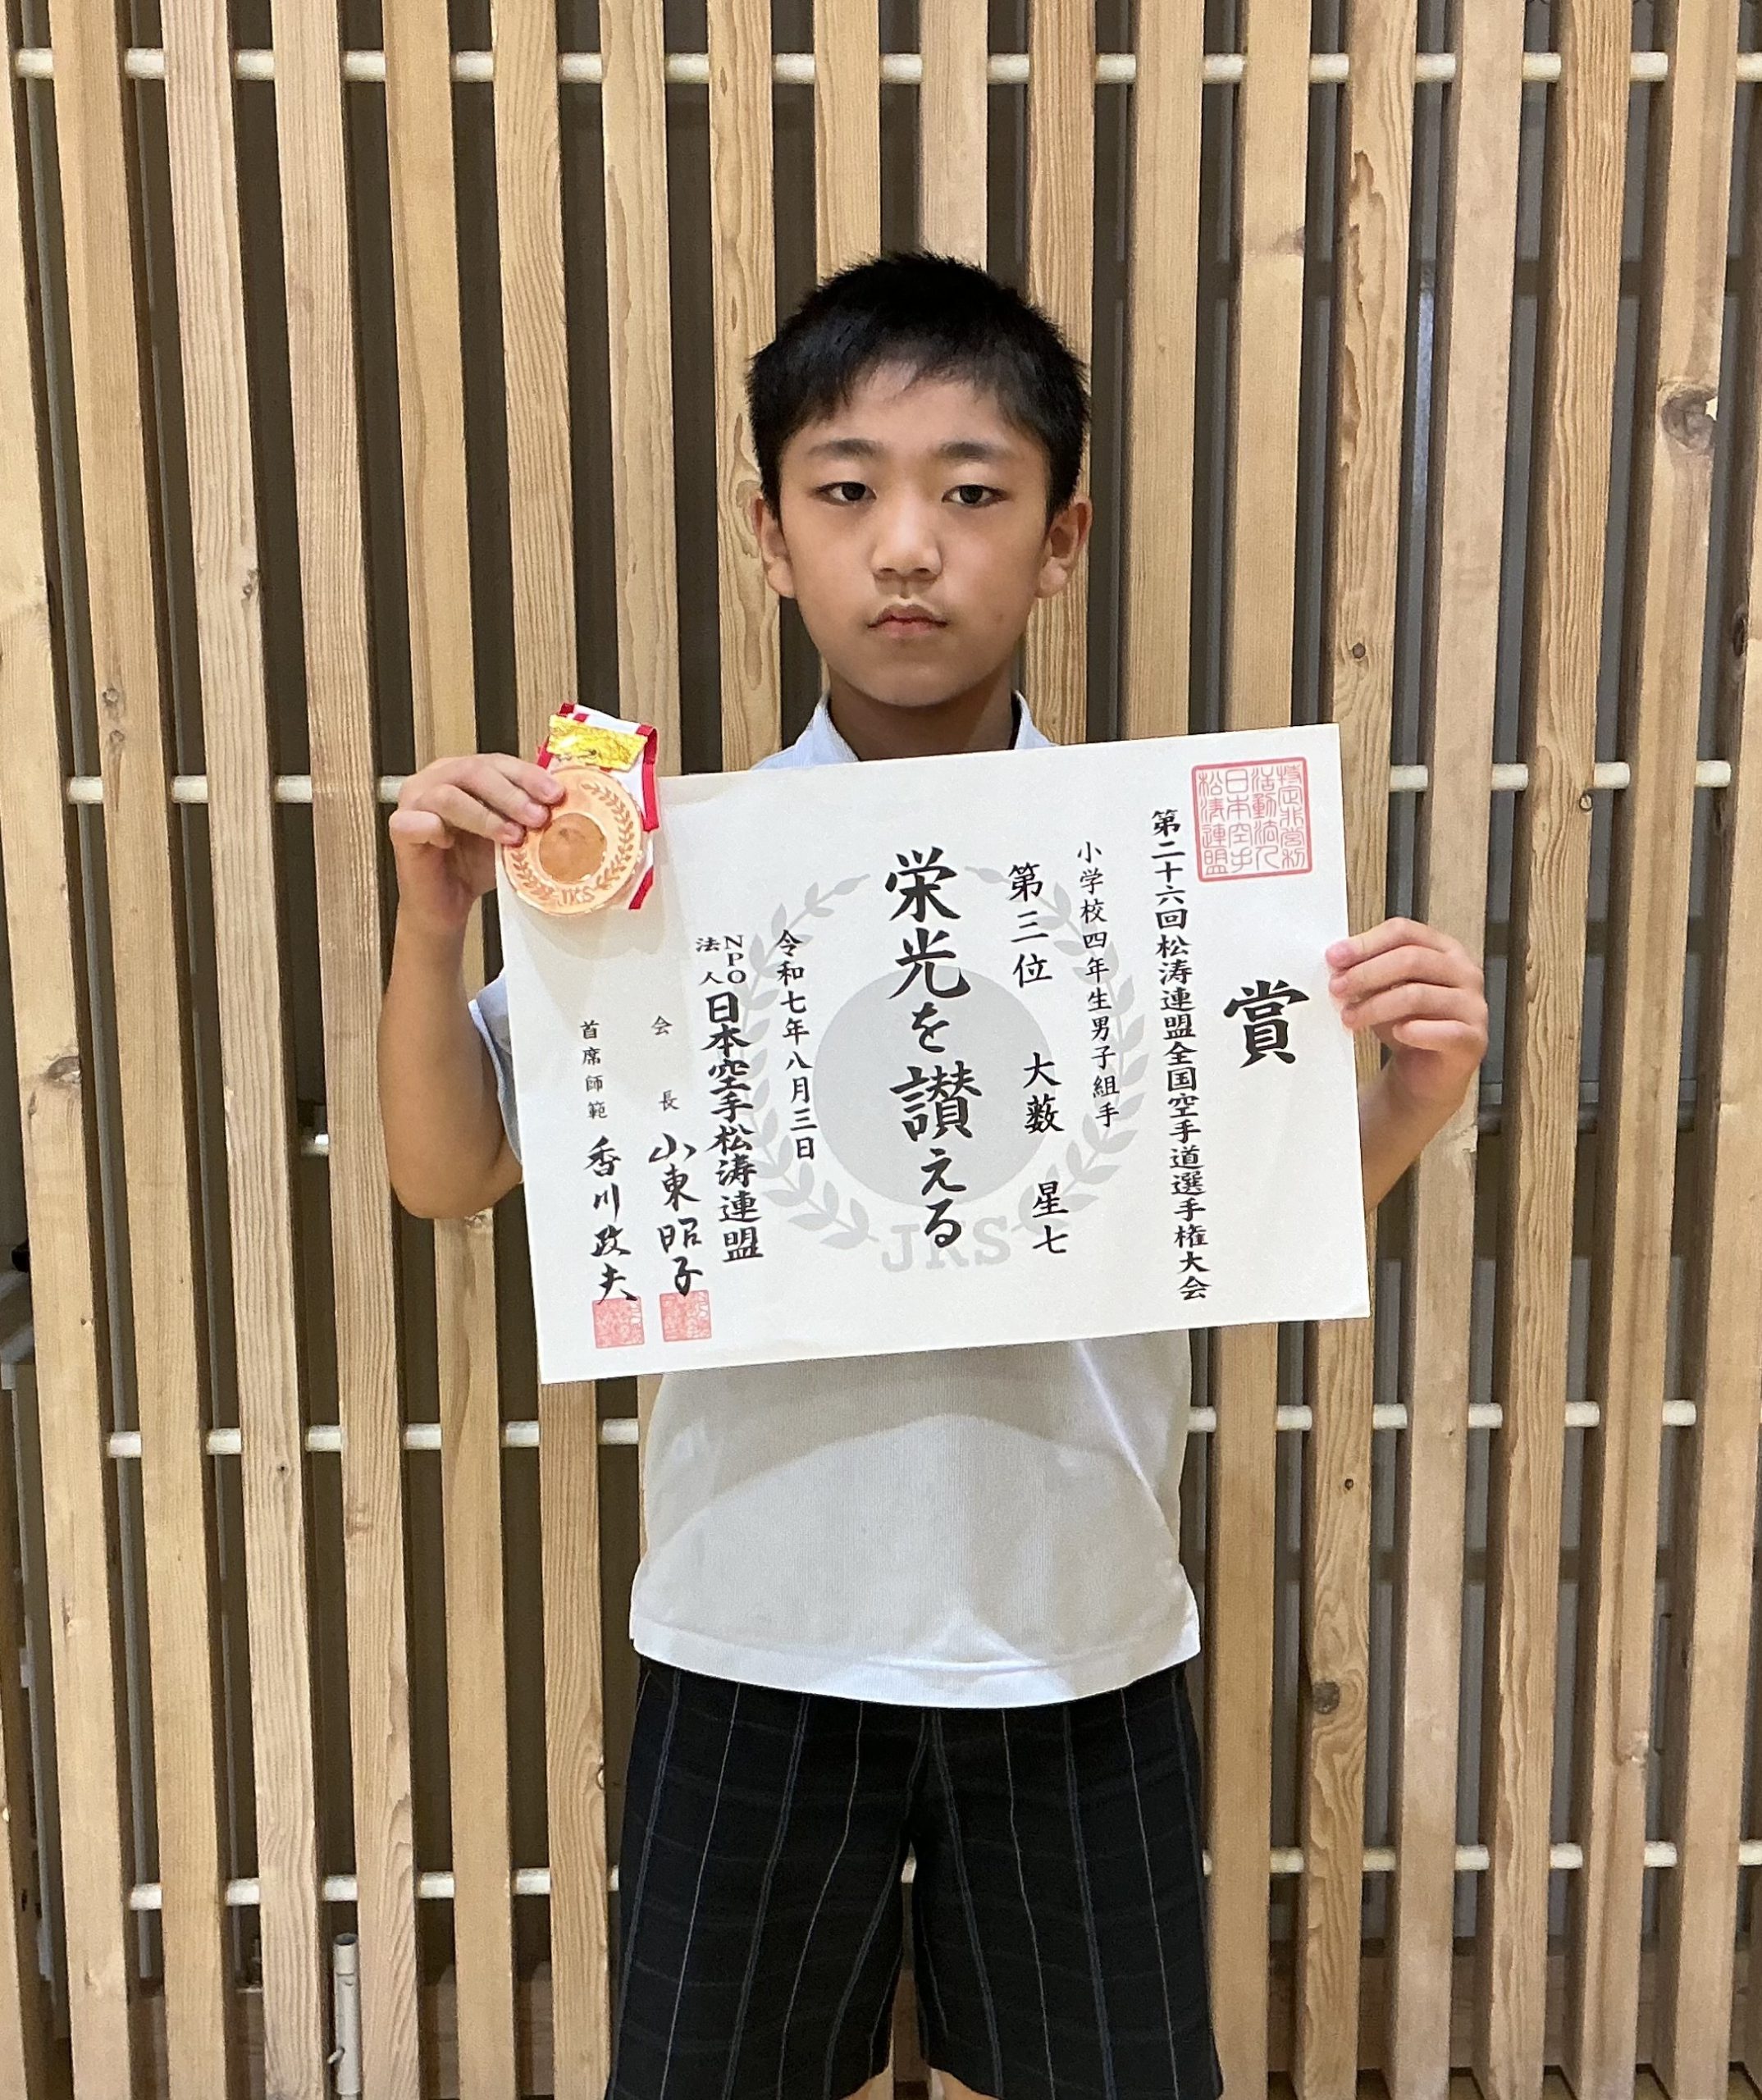 賞
第二十六回松涛連盟全国空手道選手権大会
小学校四年生男子組手
第三位 大薮 星七
栄光を讃える
令和七年八月三日
NPO法人日本空手松涛連盟
会長 山東昭子
首席師範 香川政夫
特定非営利
活動法人
日本空手
松涛連盟
JKS
JKS